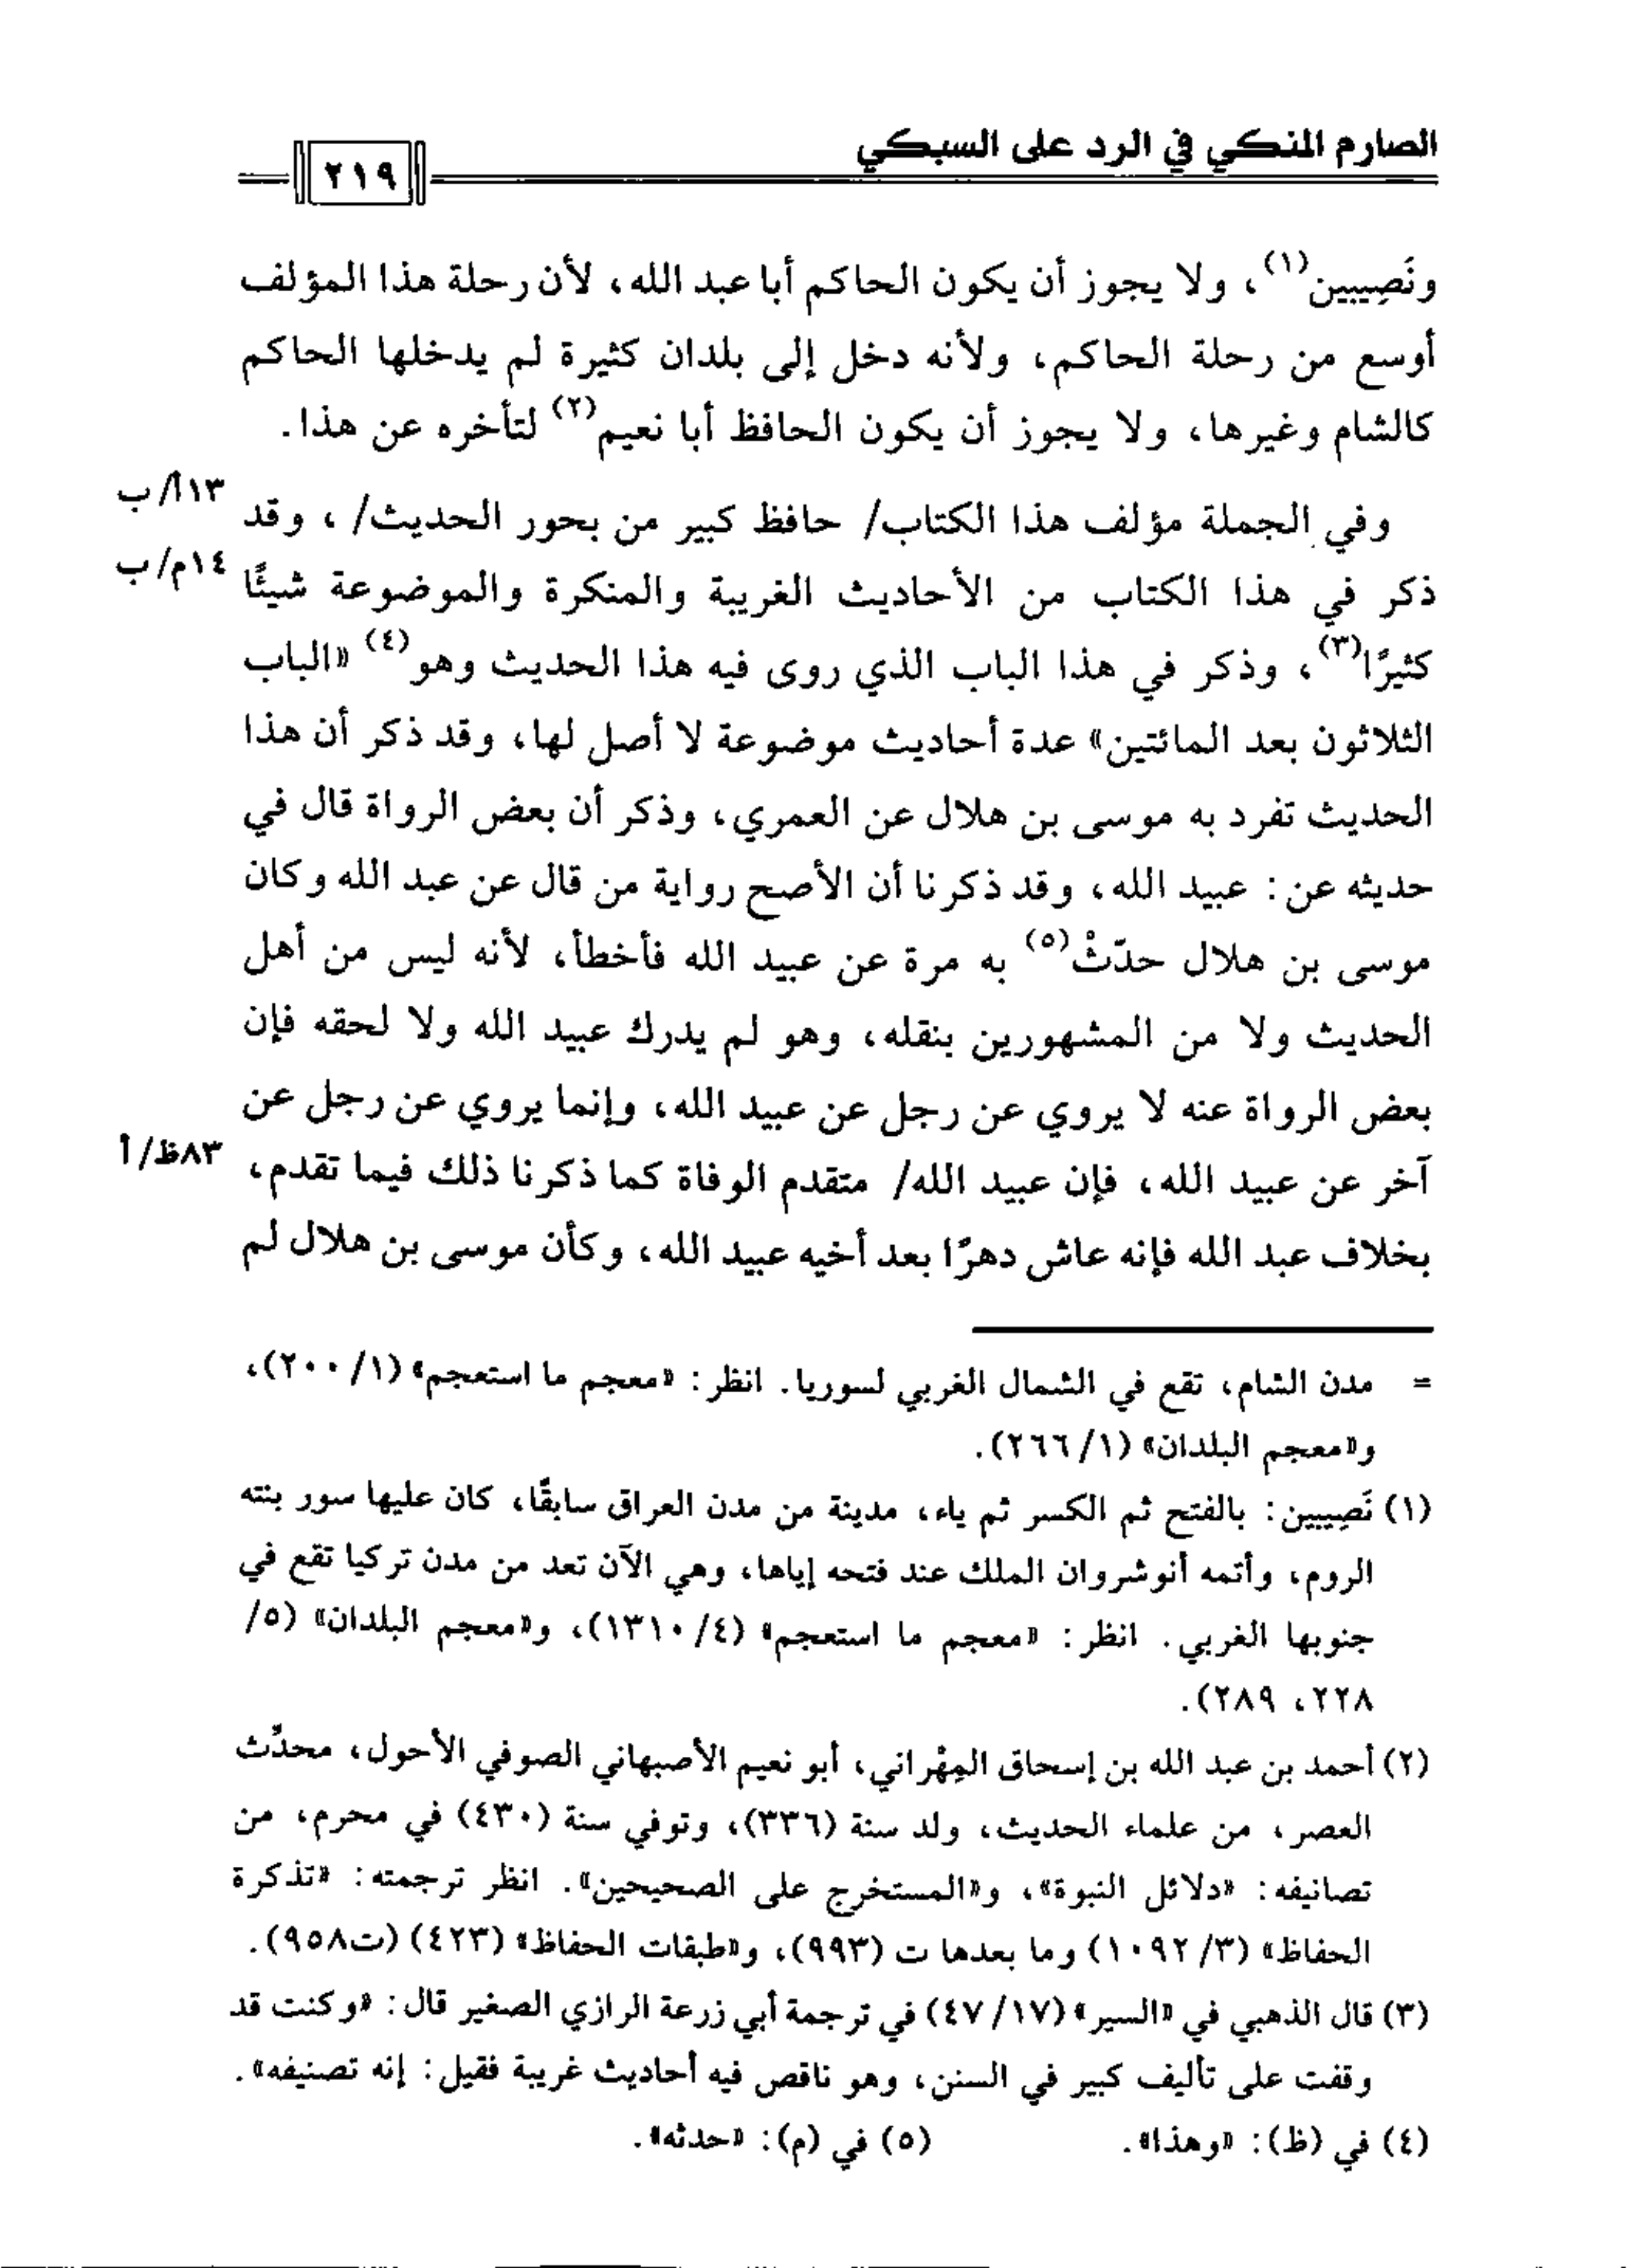 الصارم المنكي في الرد على السبكي
٢١٩
ونَصِيبين(١)، ولا يجوز أن يكون الحاكم أبا عبد الله، لأن رحلة هذا المؤلف
أوسع من رحلة الحاكم، ولأنه دخل إلى بلدان كثيرة لم يدخلها الحاكم
كالشام وغيرها، ولا يجوز أن يكون الحافظ أبا نعيم(٢) لتأخره عن هذا.
١٣أ/ب
وفي الجملة مؤلف هذا الكتاب/ حافظ كبير من بحور الحديث/، وقد
١٤م/ب
ذكر في هذا الكتاب من الأحاديث الغريبة والمنكرة والموضوعة شيئًا
كثيرًا(٣)، وذكر في هذا الباب الذي روى فيه هذا الحديث وهو(٤) «الباب
الثلاثون بعد المائتين» عدة أحاديث موضوعة لا أصل لها، وقد ذكر أن هذا
الحديث تفرد به موسى بن هلال عن العمري، وذكر أن بعض الرواة قال في
حديثه عن: عبيد الله، وقد ذكرنا أن الأصح رواية من قال عن عبد الله وكان
موسى بن هلال حدّثْ(٥) به مرة عن عبيد الله فأخطأ، لأنه ليس من أهل
الحديث ولا من المشهورين بنقله، وهو لم يدرك عبيد الله ولا لحقه فإن
بعض الرواة عنه لا يروي عن رجل عن عبيد الله، وإنما يروي عن رجل عن
آخر عن عبيد الله، فإن عبيد الله/ متقدم الوفاة كما ذكرنا ذلك فيما تقدم،
٨٣ظ/أ
بخلاف عبد الله فإنه عاش دهرًا بعد أخيه عبيد الله، وكأن موسى بن هلال لم
= مدن الشام، تقع في الشمال الغربي لسوريا. انظر: «معجم ما استعجم» (١/ ٢٠٠)،
و«معجم البلدان» (١/ ٢٦٦).
(١) نَصِيبين: بالفتح ثم الكسر ثم ياء، مدينة من مدن العراق سابقًا، كان عليها سور بنته
الروم، وأتمه أنوشروان الملك عند فتحه إياها، وهي الآن تعد من مدن تركيا تقع في
جنوبها الغربي. انظر: «معجم ما استعجم» (٤/ ١٣١٠)، و«معجم البلدان» (٥/
٢٢٨، ٢٨٩).
(٢) أحمد بن عبد الله بن إسحاق المِهْراني، أبو نعيم الأصبهاني الصوفي الأحول، محدِّث
العصر، من علماء الحديث، ولد سنة (٣٣٦)، وتوفي سنة (٤٣٠) في محرم، من
تصانيفه: «دلائل النبوة»، و«المستخرج على الصحيحين». انظر ترجمته: «تذكرة
الحفاظ» (٣/ ١٠٩٢) وما بعدها ت (٩٩٣)، و«طبقات الحفاظ» (٤٢٣) (ت٩٥٨).
(٣) قال الذهبي في «السير» (١٧/ ٤٧) في ترجمة أبي زرعة الرازي الصغير قال: «وكنت قد
وقفت على تأليف كبير في السنن، وهو ناقص فيه أحاديث غريبة فقيل: إنه تصنيفه».
(٤) في (ظ): «وهذا». (٥) في (م): «حدثه».